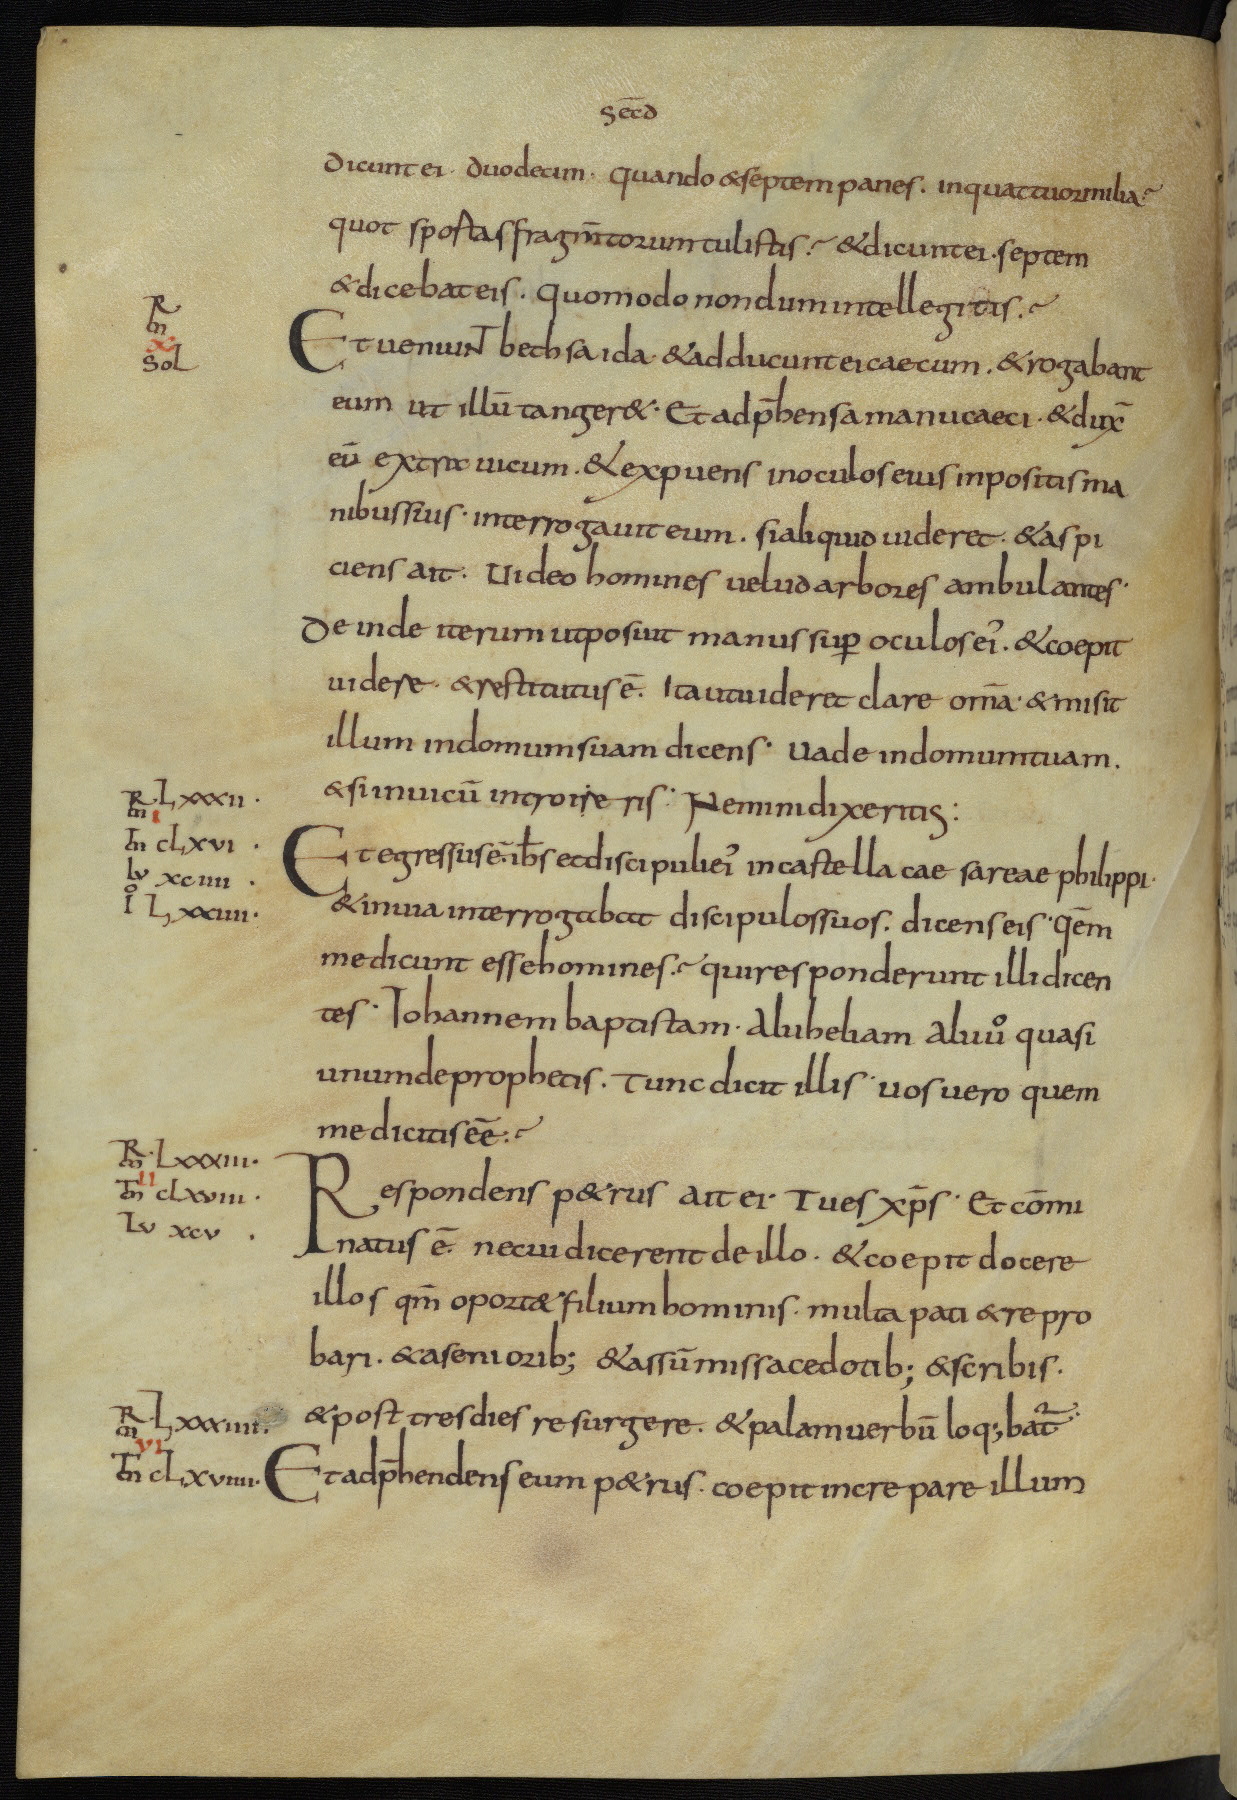 Sēcd
dicunt ei · duodecim · quando & septem panes . in quattuor milia?
quot spostas fragm̄torum tulistis? & dicunt ei · septem
& dicebat eis . quomodo nondum intellegitis?
R
m
x
Sol
Et ueniunt bethsaida · & adducunt ei caecum . & rogabant
eum ut illū tanger& · Et adp̄hensa manu caeci · & dux̄
eū extra uicum . & expuens in oculos eius inpositis ma
nibus suis · interrogauit eum . si aliquid uideret · & aspi
ciens ait · Uideo homines uelud arbores ambulantes ·
Deinde iterum inposuit manus sup oculos ei᾽ . & coepit
uidere · & restitutus ē . Ita ut uideret clare om̄a · & misit
illum in domum suam dicens · Uade in domum tuam .
R · Lxxxii ·
m i
& si in uicū introieris · Nemini dixeritis :
m cLxvi ·
Et egressus ē · ih̄s et discipuli ei᾽ in castella caesareae philippi ·
lu xciiii ·
iº Lxxiiii ·
& in uia interrogabat discipulos suos . dicens eis · qēm
me dicunt esse homines? qui responderunt illi dicen
tes · Iohannem baptistam · Alii heliam Alii uº quasi
unum de prophetis . Tunc dicit illis · uos uero quem
me dicitis eē?
R · Lxxxiii ·
m ii
Respondens p&rus ait ei · Tu es xp̄s · Et cōmi
m cLxviii ·
lu xcv ·
natus ē · ne cui dicerent de illo . & coepit docere
illos qm̄ oport& filium hominis · multa pati & repro
bari . & a seniorib; & a ssūmis sacedotib; & scribis .
R · Lxxxiiii ·
m vi
& post tres dies resurgere . & palam uerbū loq;bat᾽ ·
m cLxviiii ·
Et adp̄hendens eum p&rus · coepit increpare illum